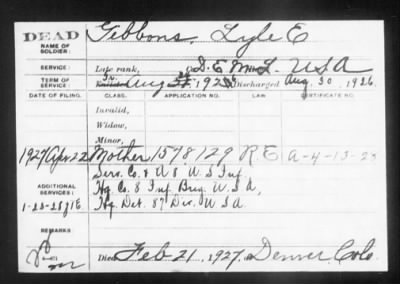 DEAD
NAME OF SOLDIER: Gibbons, Lyle E
SERVICE: Late rank, D. E. M. L. U.S.A
TERM OF SERVICE: Enlisted Aug , 192 Discharged Aug 30, 1926
DATE OF FILING. CLASS. APPLICATION NO. LAW. CERTIFICATE NO.
Invalid,
Widow,
Minor,
1927 Apr 22 Mother 1578129 R.E. A-4-13-
ADDITIONAL SERVICES: Serv. Co. U.S. Inf.
Hq. Co. 8 Inf. Brig. U.S.A,
Hq. Det. 87 Div. U.S.A.
REMARKS
Died Feb 21, 1927, at Denver, Colo.